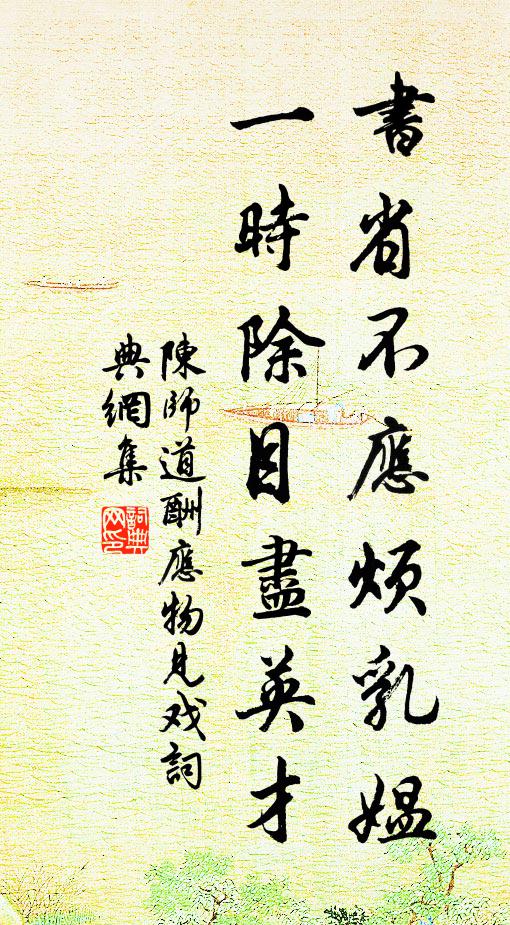 書省不應煩乳媼
一時除目盡英才
陳師道酬應物見戏詞
典網集
詞典網印